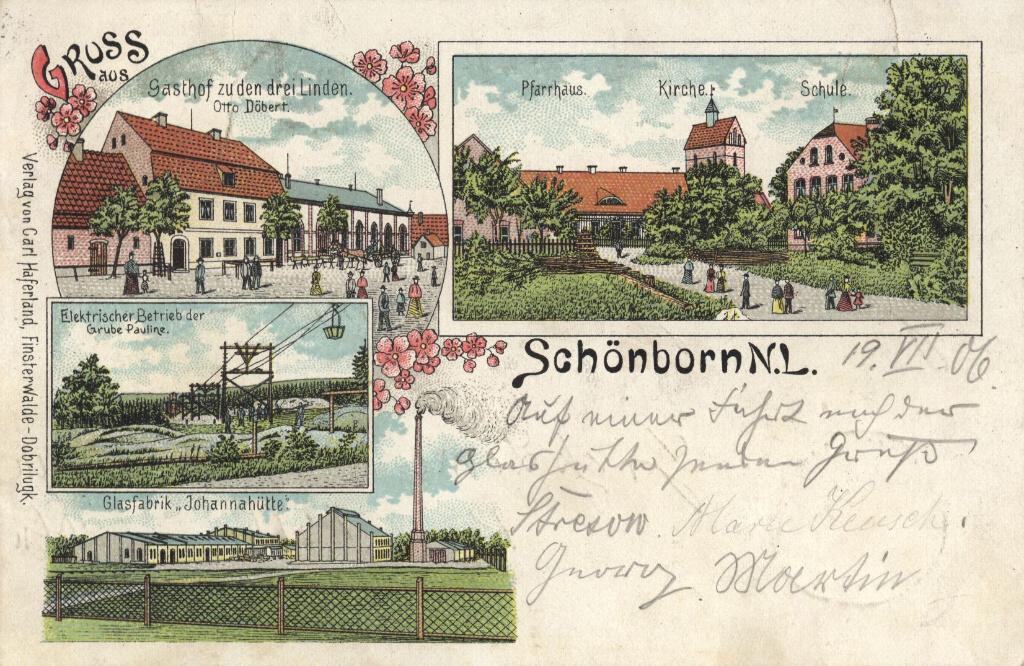 Gruss
aus
Gasthof zu den drei Linden.
Otto Döbert.
Pfarrhaus. Kirche. Schule.
Verlag von Carl Häferland, Finsterwalde-Dobrilugk.
Elektrischer Betrieb der
Grube Pauline.
Glasfabrik „Johannahütte".
Schönborn N.L.
19. VII 06.
Auf einer Fahrt nach der
Glashütte Gruß
Stresow. Marie
Georg Martin